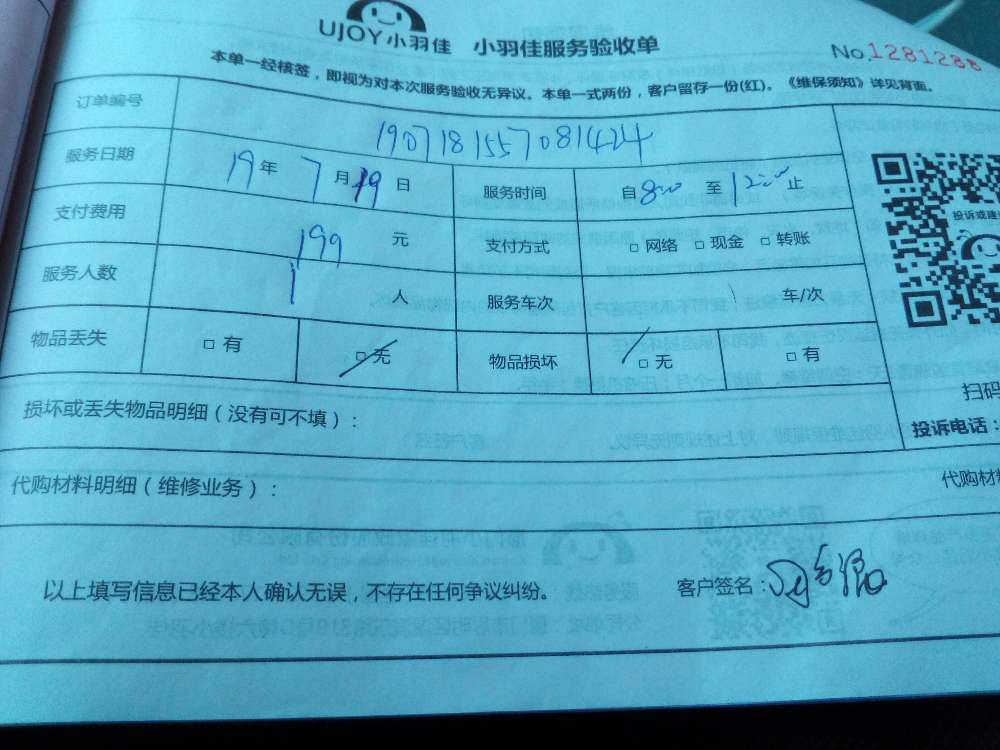 UJOY小羽佳 小羽佳服务验收单
No.1281288
本单一经核签，即视为对本次服务验收无异议。本单一式两份，客户留存一份(红)。《维保须知》详见背面。
订单编号 190718155708 1424
服务日期 19年 7月19日 服务时间 自8:00 至12:00止
支付费用 199 元 支付方式 □ 网络 □ 现金 □ 转账
服务人数 1 人 服务车次 \ 车/次
物品丢失 □ 有 □ 无 物品损坏 □ 无 □ 有
损坏或丢失物品明细（没有可不填）：
代购材料明细（维修业务）： 代购材料
以上填写信息已经本人确认无误，不存在任何争议纠纷。 客户签名：
投诉或建
扫码
投诉电话：